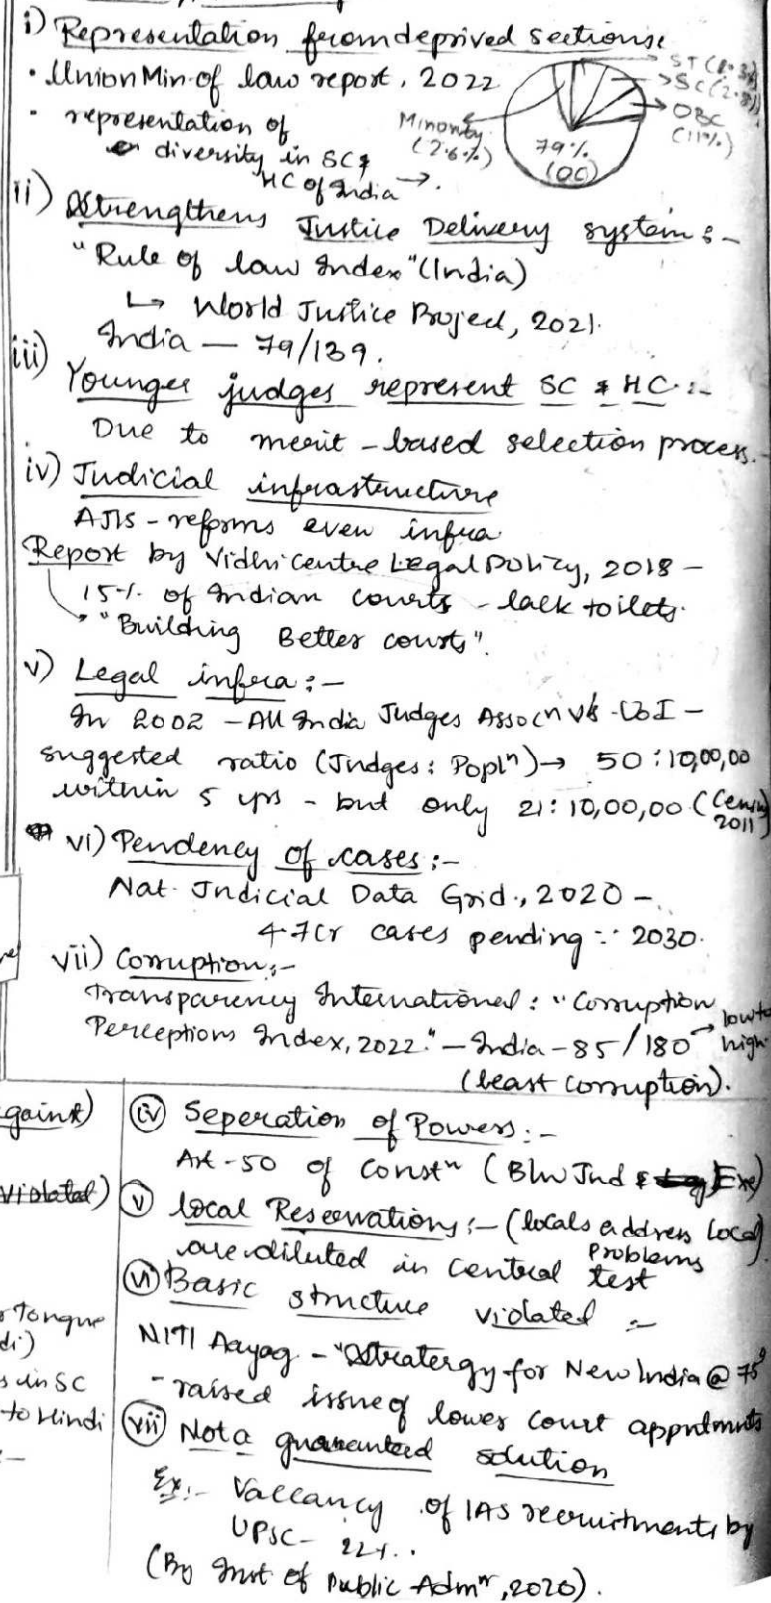 i) Representation from deprived sections:
• Union Min. of law report, 2022
• representation of
diversity in SC &
HC of India →.
ST
SC
OBC
(11%)
Minority
(2.6%)
79%
(OC)
ii) Strengthens Justice Delivery system:-
"Rule of law Index" (India)
↳ World Justice Project, 2021.
India — 79/139.
iii) Younger judges represent SC & HC:-
Due to merit-based selection process.
iv) Judicial infrastructure
AJIS - reforms even infra
Report by Vidhi Centre Legal Policy, 2018 -
15% of Indian courts - lack toilets.
"Building Better courts".
v) Legal infra:-
In 2002 - All India Judges Assocn v/s UoI -
suggested ratio (Judges: Popln) → 50:10,00,00
within 5 yrs - but only 21:10,00,00 (Census
2011)
vi) Pendency of cases:-
Nat. Judicial Data Grid., 2020 -
4.7Cr cases pending 2030.
vii) Corruption:-
Transparency International: "Corruption
Perceptions Index, 2022." - India - 85/180 → low to
high
(least corruption).
gainst)
violated)
Tongue
di)
s in SC
to Hindi
(iv) Seperation of Powers:-
Art-50 of Constn (B/w Jud & Exe)
(v) local Reservations:- (locals address local
problems
are diluted in central test
(vi) Basic structure violated :-
NITI Aayog - "Stratergy for New India @ 75"
- raised issue of lower court appntments
(vii) Not a guaranteed solution
Ex:- Vaccancy of IAS recruitments by
UPSC- 22%.
(By Inst of Public Admn, 2020).